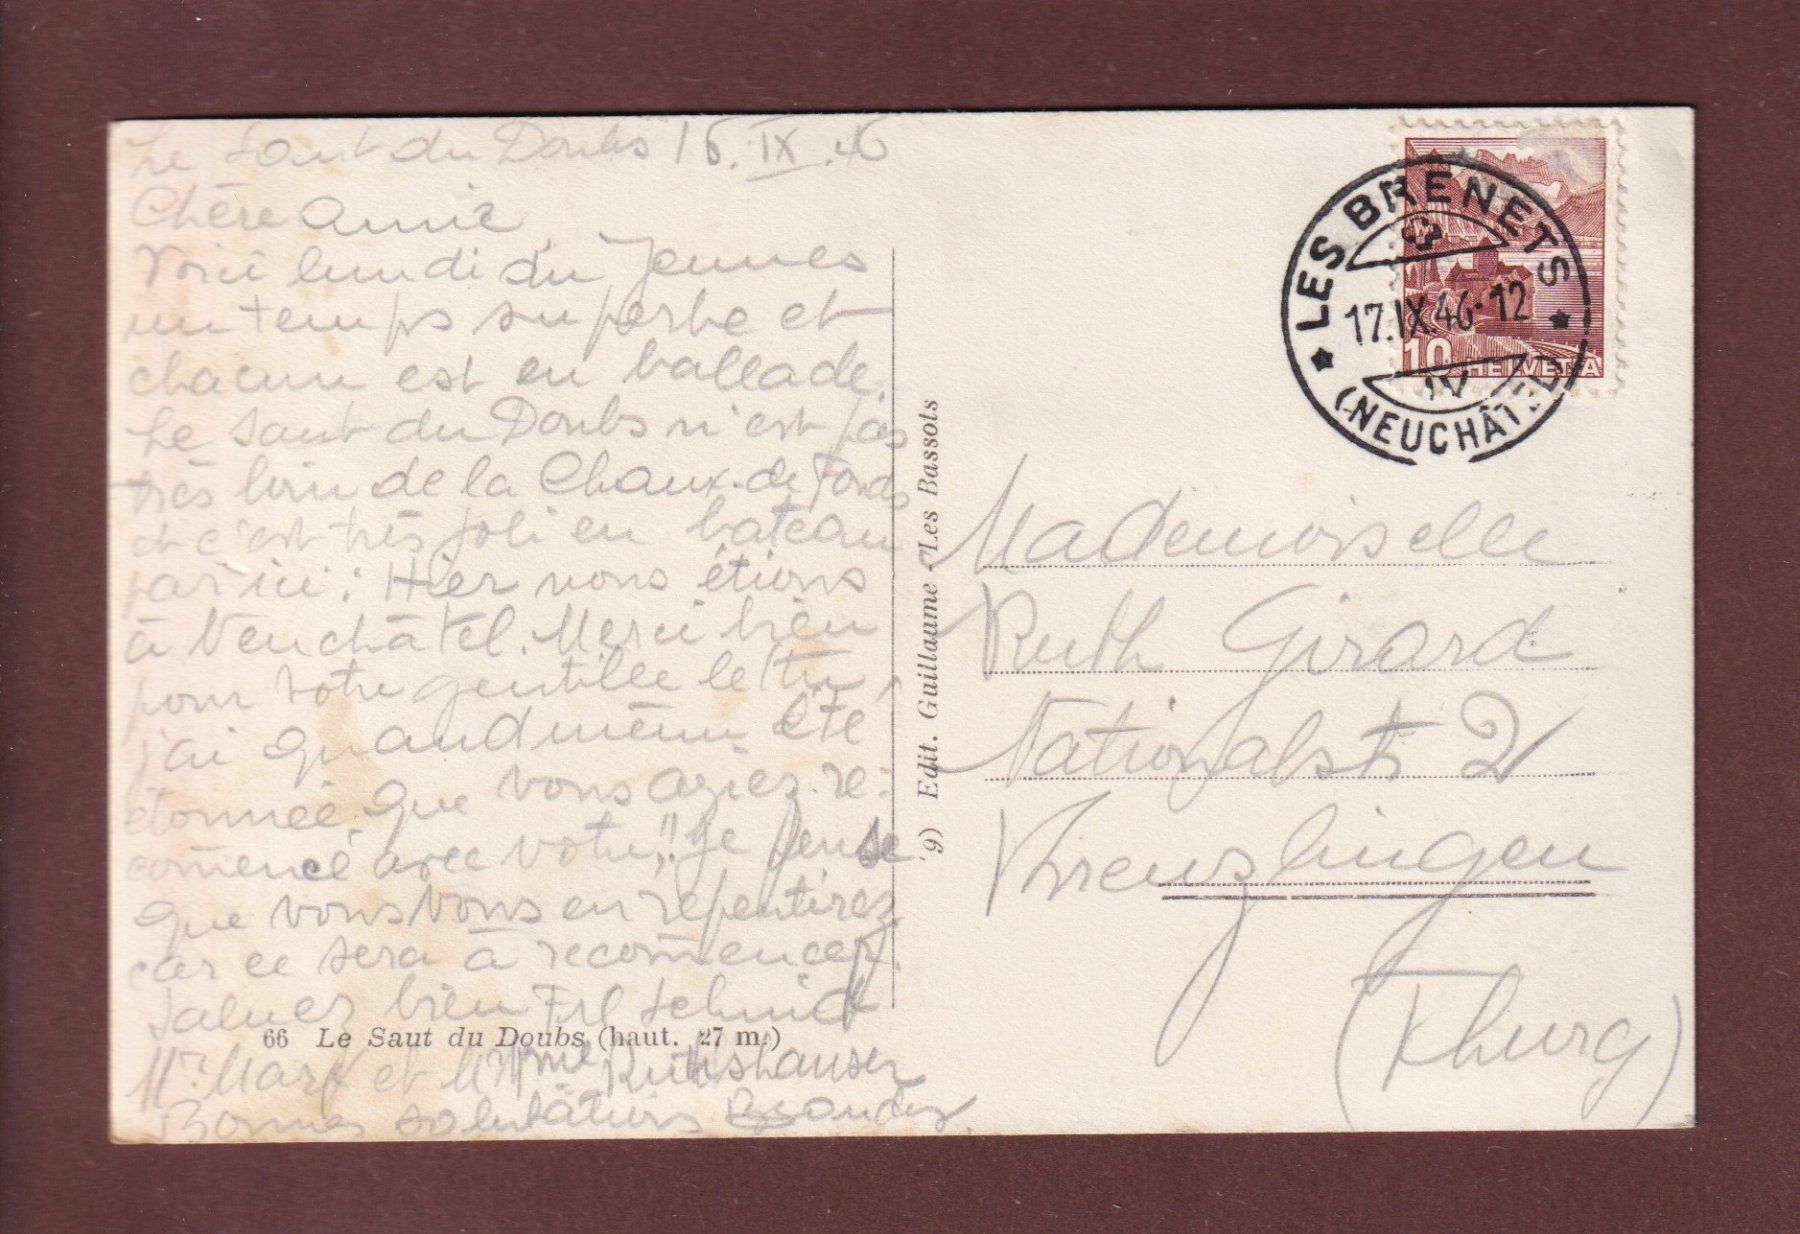 Le Saut du Doubs 16.IX.46
Chère Amie
Voici lundi du Jeunes
un temps superbe et
chacun est en ballade.
Le Saut du Doubs n'est pas
très loin de la Chaux-de-Fonds
et c'est très joli en bateau
par ici. Hier nous étions
à Neuchâtel. Merci bien
pour votre gentille lettre,
j'ai quand même été
étonnée que vous ayiez re-
com̄encé avec votre,!! Je pense
que vous vous en repentirez
car ce sera à recom̄encer.
Saluez bien Frl Schmid
66 Le Saut du Doubs (haut. 27 m.)
Mr. Marx et Mme Rutishauser
Bonnes salutations
9) Edit. Guillaume Les Bassots
LES BRENETS
17.IX.46-12
(NEUCHÂTEL)
10 HELVETIA
Mademoiselle
Ruth Girard
Nationalstr 2
Kreuzlingen
(Thurg)